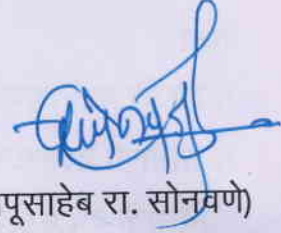 पूसाहेब रा. सोनवणे)